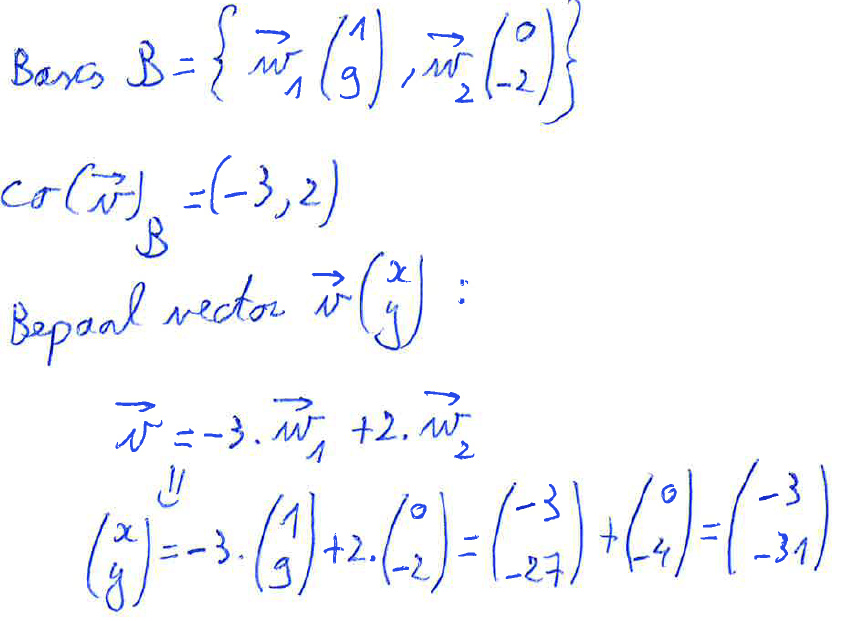 Basis B = { w⃗₁ (1 9), w⃗₂ (0 -2) }
co(v⃗)_B = (-3, 2)
Bepaal vector v⃗ (x y) :
v⃗ = -3 . w⃗₁ + 2 . w⃗₂
⇓
(x y) = -3 . (1 9) + 2 . (0 -2) = (-3 -27) + (0 -4) = (-3 -31)